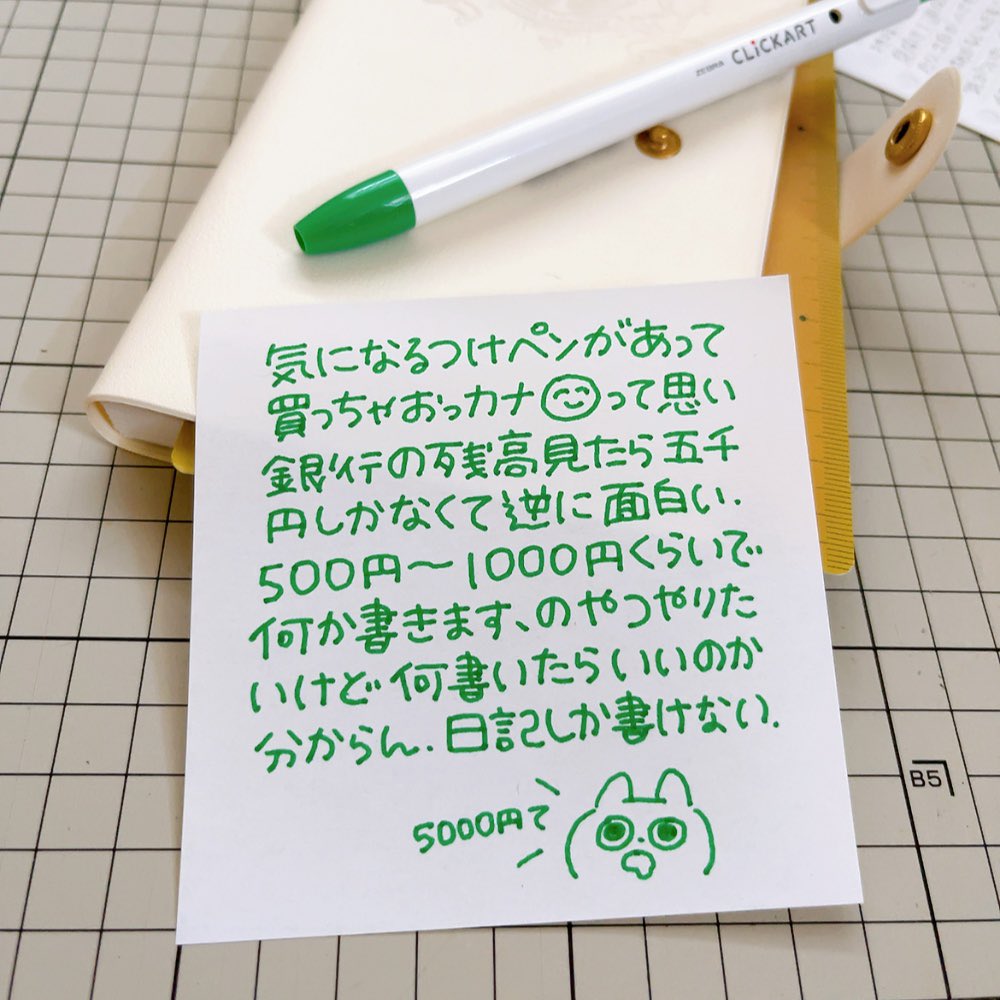 ZEBRA CLiCKART
気になるつけペンがあって
買っちゃおっカナ😊って思い
銀行の残高見たら五千
円しかなくて逆に面白い.
500円〜1000円くらいで
何か書きます、のやつやりた
いけど何書いたらいいのか
分からん.日記しか書けない.
5000円て
B5